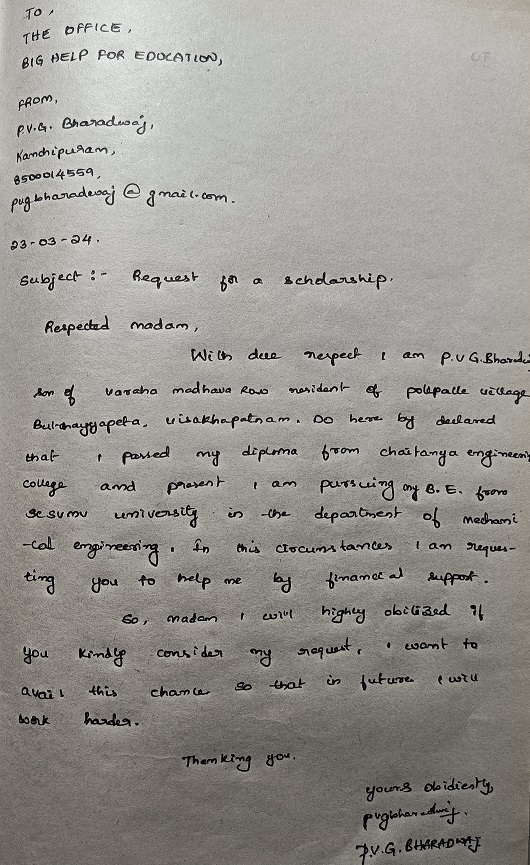 TO,
THE OFFICE,
BIG HELP FOR EDUCATION,
FROM,
P.V.G. Bharadwaj,
Kanchipuram,
8500014559,
pvgbharadwaj@gmail.com.
23-03-24.
Subject :- Request for a scholarship.
Respected madam,
With due respect I am P.V G.Bharadw
son of varaha madhava Rao resident of polepalle village
, visakhapatnam. Do here by declared
that I passed my diploma from chaitanya engineering
college and present I am pursuing my B.E. from
scsvmv university in the department of mechani
-cal engineering. In this circumstances I am reques-
ting you to help me by financeal support.
So, madam I will highly obilized if
you kindly consider my request, I want to
avail this chance so that in future I will
work harder.
Thanking you.
yours obidiently,
pvgbharadwaj.
P.V.G. BHARADWAJ